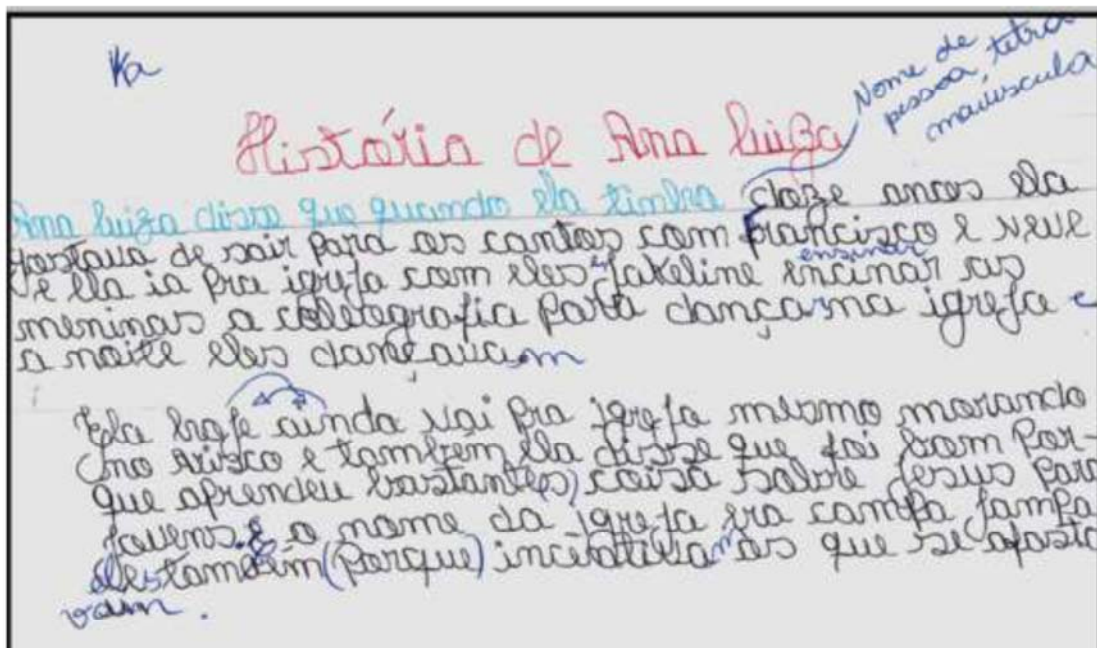 Ka
Nome de
pessoa, letra
maiúscula
História de Ana luiza
Ana luiza disse que quando ela tinha doze anos ela
gostava de sair para os cantos com Francisco e neve
ensinar
e ela ia pra igreja com eles jakeline encinar as
meninas a coleografia para dança na igreja e
a noite eles dançavam
Ela hoje ainda vai pra igreja mesmo morando
no risco e tambem ela disse que foi bom por-
que aprendeu bastante(s) coisa sobre jesus para
jovens. E o nome da igreja era
eles também (porque) incentiva os que se afasta
vam.